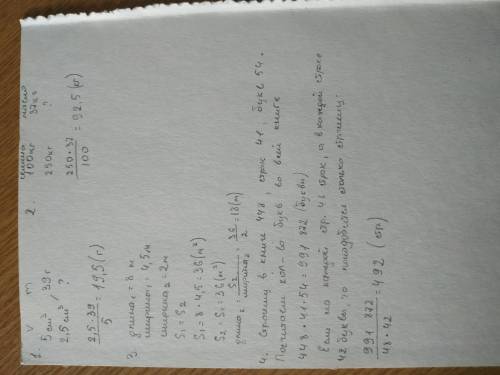 1. V m
5 cm³ / 39 г
2,5 cm³ ?
2,5 · 39 / 5 = 19,5 (г)
2.
100 кг масло 37 кг
250 кг ?
250 · 37 / 100 = 92,5 (кг)
3. длина₁ = 8 м
ширина₁ = 4,5 м
ширина₂ = 2 м
S₁ = S₂
S₁ = 8 · 4,5 = 36 (м²)
S₂ = S₁ = 36 (м²)
длина₂ = S₂ / ширина₂ = 36 / 2 = 18 (м)
4. Страниц в книге 448, строк 41, букв 54.
Посчитаем кол-во букв во всей книге
448 · 41 · 54 = 991 872 (буквы)
Если на каждой стр. 48 строк, а в каждой строке
42 буквы, то понадобится столько страниц:
991 872 / 48 · 42 = 492 (стр)